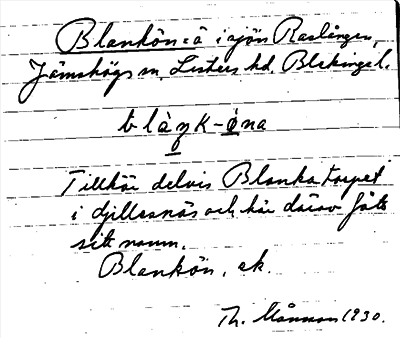 Blankön = ö i sjön Raslången,
Jämshögs sn, Listers hd, Blekinge l.
blàŋk-øna
Tillhör delvis Blanka torpet
i Gillesnäs och har därav fått
sitt namn.
Blankön, ek.
Th. Månsson 1930.